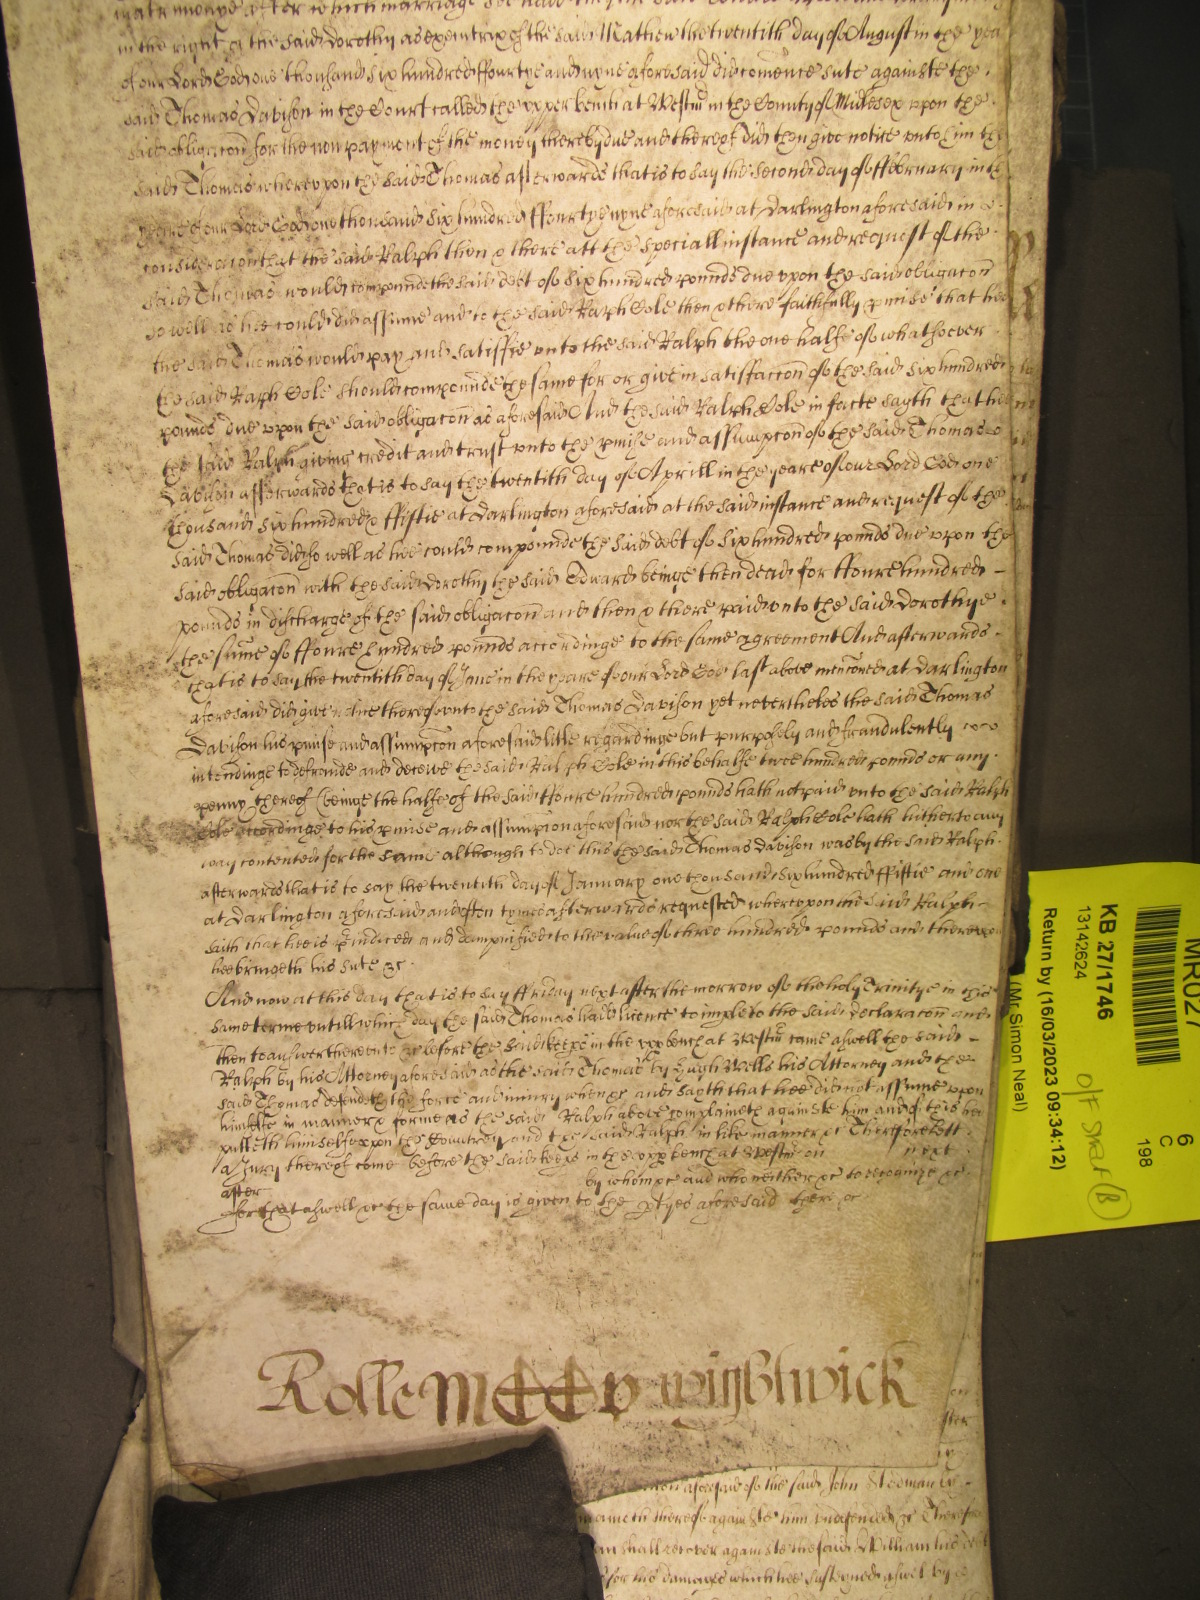 matrimonye after which marriage
in the right of the said Dorothy as executrix of the said Mathew the twentith day of August in the yea
of our Lord God one thousand six hundred ffourtye and nyne aforesaid did comence sute againste the
said Thomas Davison in the Court called the upper bench at Westmr in the County of Midlesex upon the
said obligacon for the non payment of the money thereby due and thereof did then give notice unto him the
said Thomas whereupon the said Thomas afterwards that is to say the second day of ffebruary in the
yeare of our Lord God one thousand six hundred ffourtye nyne aforesaid at Darlington aforesaid in
consideracon that the said Ralph then & there att the speciall instance and request of the
said Thomas would compounde the said debt of six hundred pounds due upon the said obligacon
so well as hee could did assume and to the said Ralph Cole then & there faithfully pmise that hee
the said Thomas would pay and satisfie unto the said Ralph the one halfe of whatsoever
the said Raph Cole should compounde the same for or give in satisfaccon of the said six hundred
pounds due upon the said obligacon as aforesaid And the said Ralph Cole in facte sayth that hee
the said Ralph giving credit and trust unto the pmise and assumpcon of the said Thomas
Davison afterwards that is to say the twentith day of Aprill in the yeare of our Lord God one
thousand six hundred & ffiftie at Darlington aforesaid at the said instance and request of the
said Thomas did so well as hee could compounde the said debt of six hundred pounds due upon the
said obligacon with the said Dorothy the said Edward beinge then dead for ffoure hundred
pounds in discharge of the said obligacon and then & there paid unto the said Dorothye
the sume of ffoure hundred pounds accordinge to the same agreement And afterwards
that is to say the twentith day of June in the yeare of our Lord God last above menconed at Darlington
aforesaid did give notice thereof unto the said Thomas Davison yet nevertheles the said Thomas
Davison his pmise and assumpcon aforesaid litle regardinge but purposely and fraudulently
intendinge to defraude and deceive the said Ralph Cole in this behalfe twoe hundred pounds or any
penny thereof (beinge the halfe of the said ffoure hundred pounds hath not paid unto the said Ralph
Cole accordinge to his pmise and assumpcon aforesaid nor the said Ralph Cole hath hitherto any
way contented for the same although to doe this the said Thomas Davison was by the said Ralph
afterwards that is to say the twentith day of January one thousand six hundred ffiftie and one
at Darlington aforesaid and often tymes afterwards requested whereupon the said Ralph
saith that hee is piudiced and dampnified to the value of three hundred pounds and thereupon
hee bringeth his sute &c
And now at this day that is to say ffriday next after the morrow of the holy Trinitye in this
same terme untill which day the said Thomas had licence to imple to the said declaracon and
then to answer thereunto &c before the said keeps in the upp bench at Westmr came aswell the said
Ralph by his Attorney aforesaid as the said Thomas by Hugh Wells his Attorney and the
said Thomas defendeth the force and iniury when &c and sayth that hee did not assume upon
himselfe in manner & forme as the said Ralph above complaineth againste him and of this hee
putteth himselfe upon the Countrey and the said Ralph in like manner &c Therefore lett
a Jury thereof come before the said keeps in the upp bench at Westmr on next
after by whom &c and who neither &c to recognize &c
for that aswell &c the same day is given to the ptyes aforesaid there &c
Rolle MCCV wightwick
aforesaid of the said John
thereof againste him undefended &c Therefore
shall recover againste the said William his debt
for his damages which hee susteyned aswel by
MR027
KB 27/1746
13142624
Return by (16/03/2023 09:34:12)
(Mr Simon Neal)
6
C
198
O/F Strat (B)